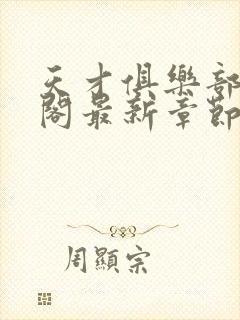 天才俱樂部
閣最新章節
周顯宗